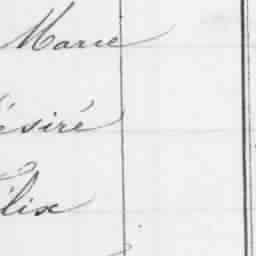 Marie
ésiré
élix